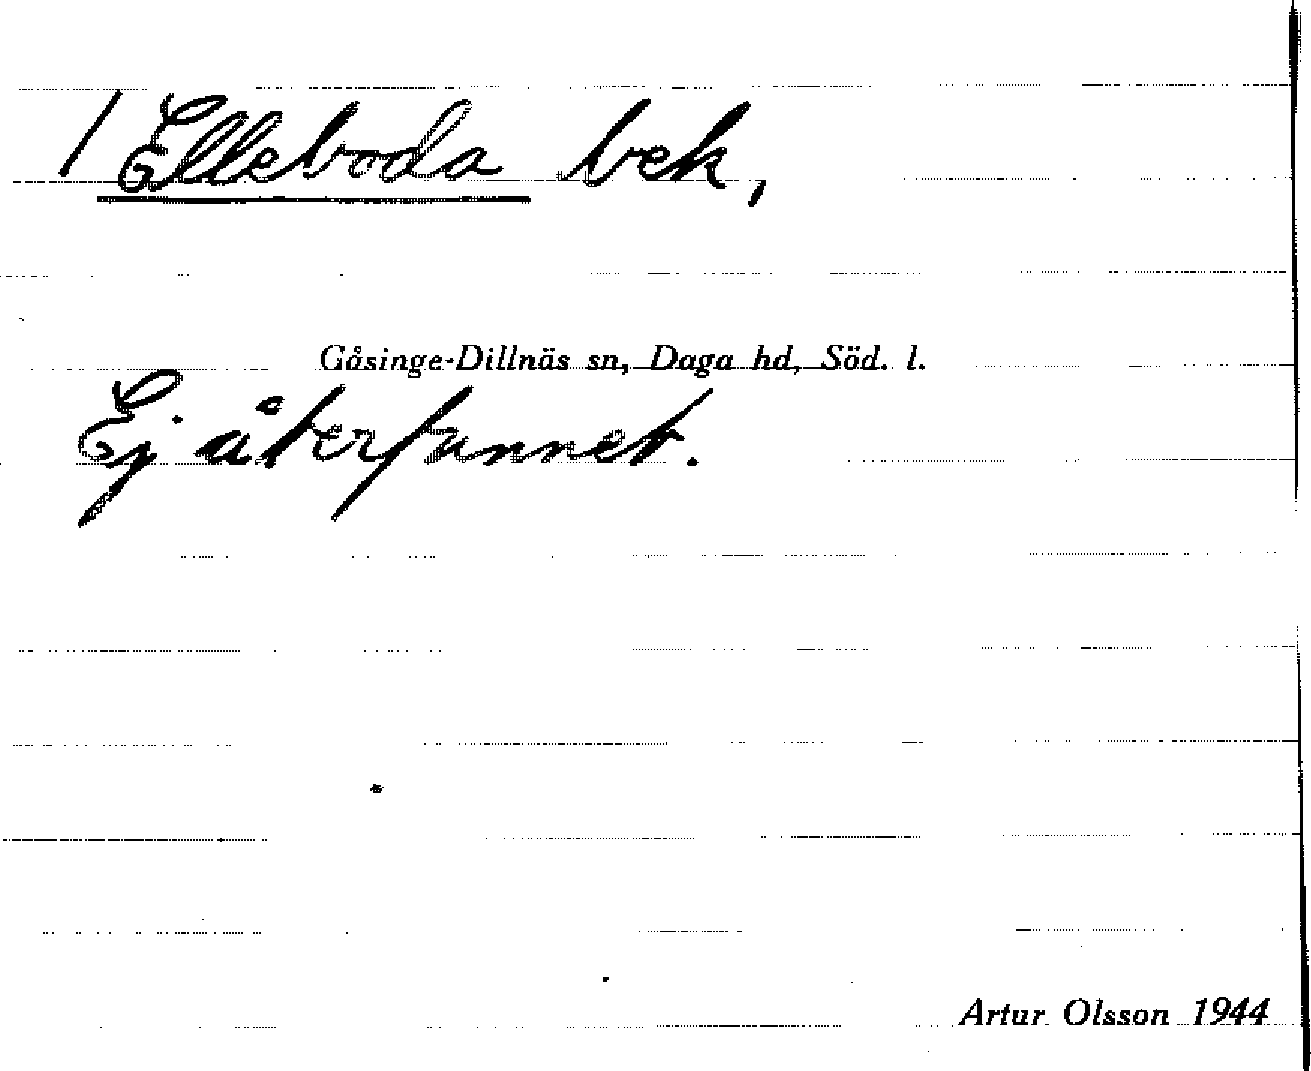 / Elleboda bek,
Gåsinge-Dillnäs sn, Daga hd, Söd. l.
Ej återfunnet.
Artur Olsson 1944